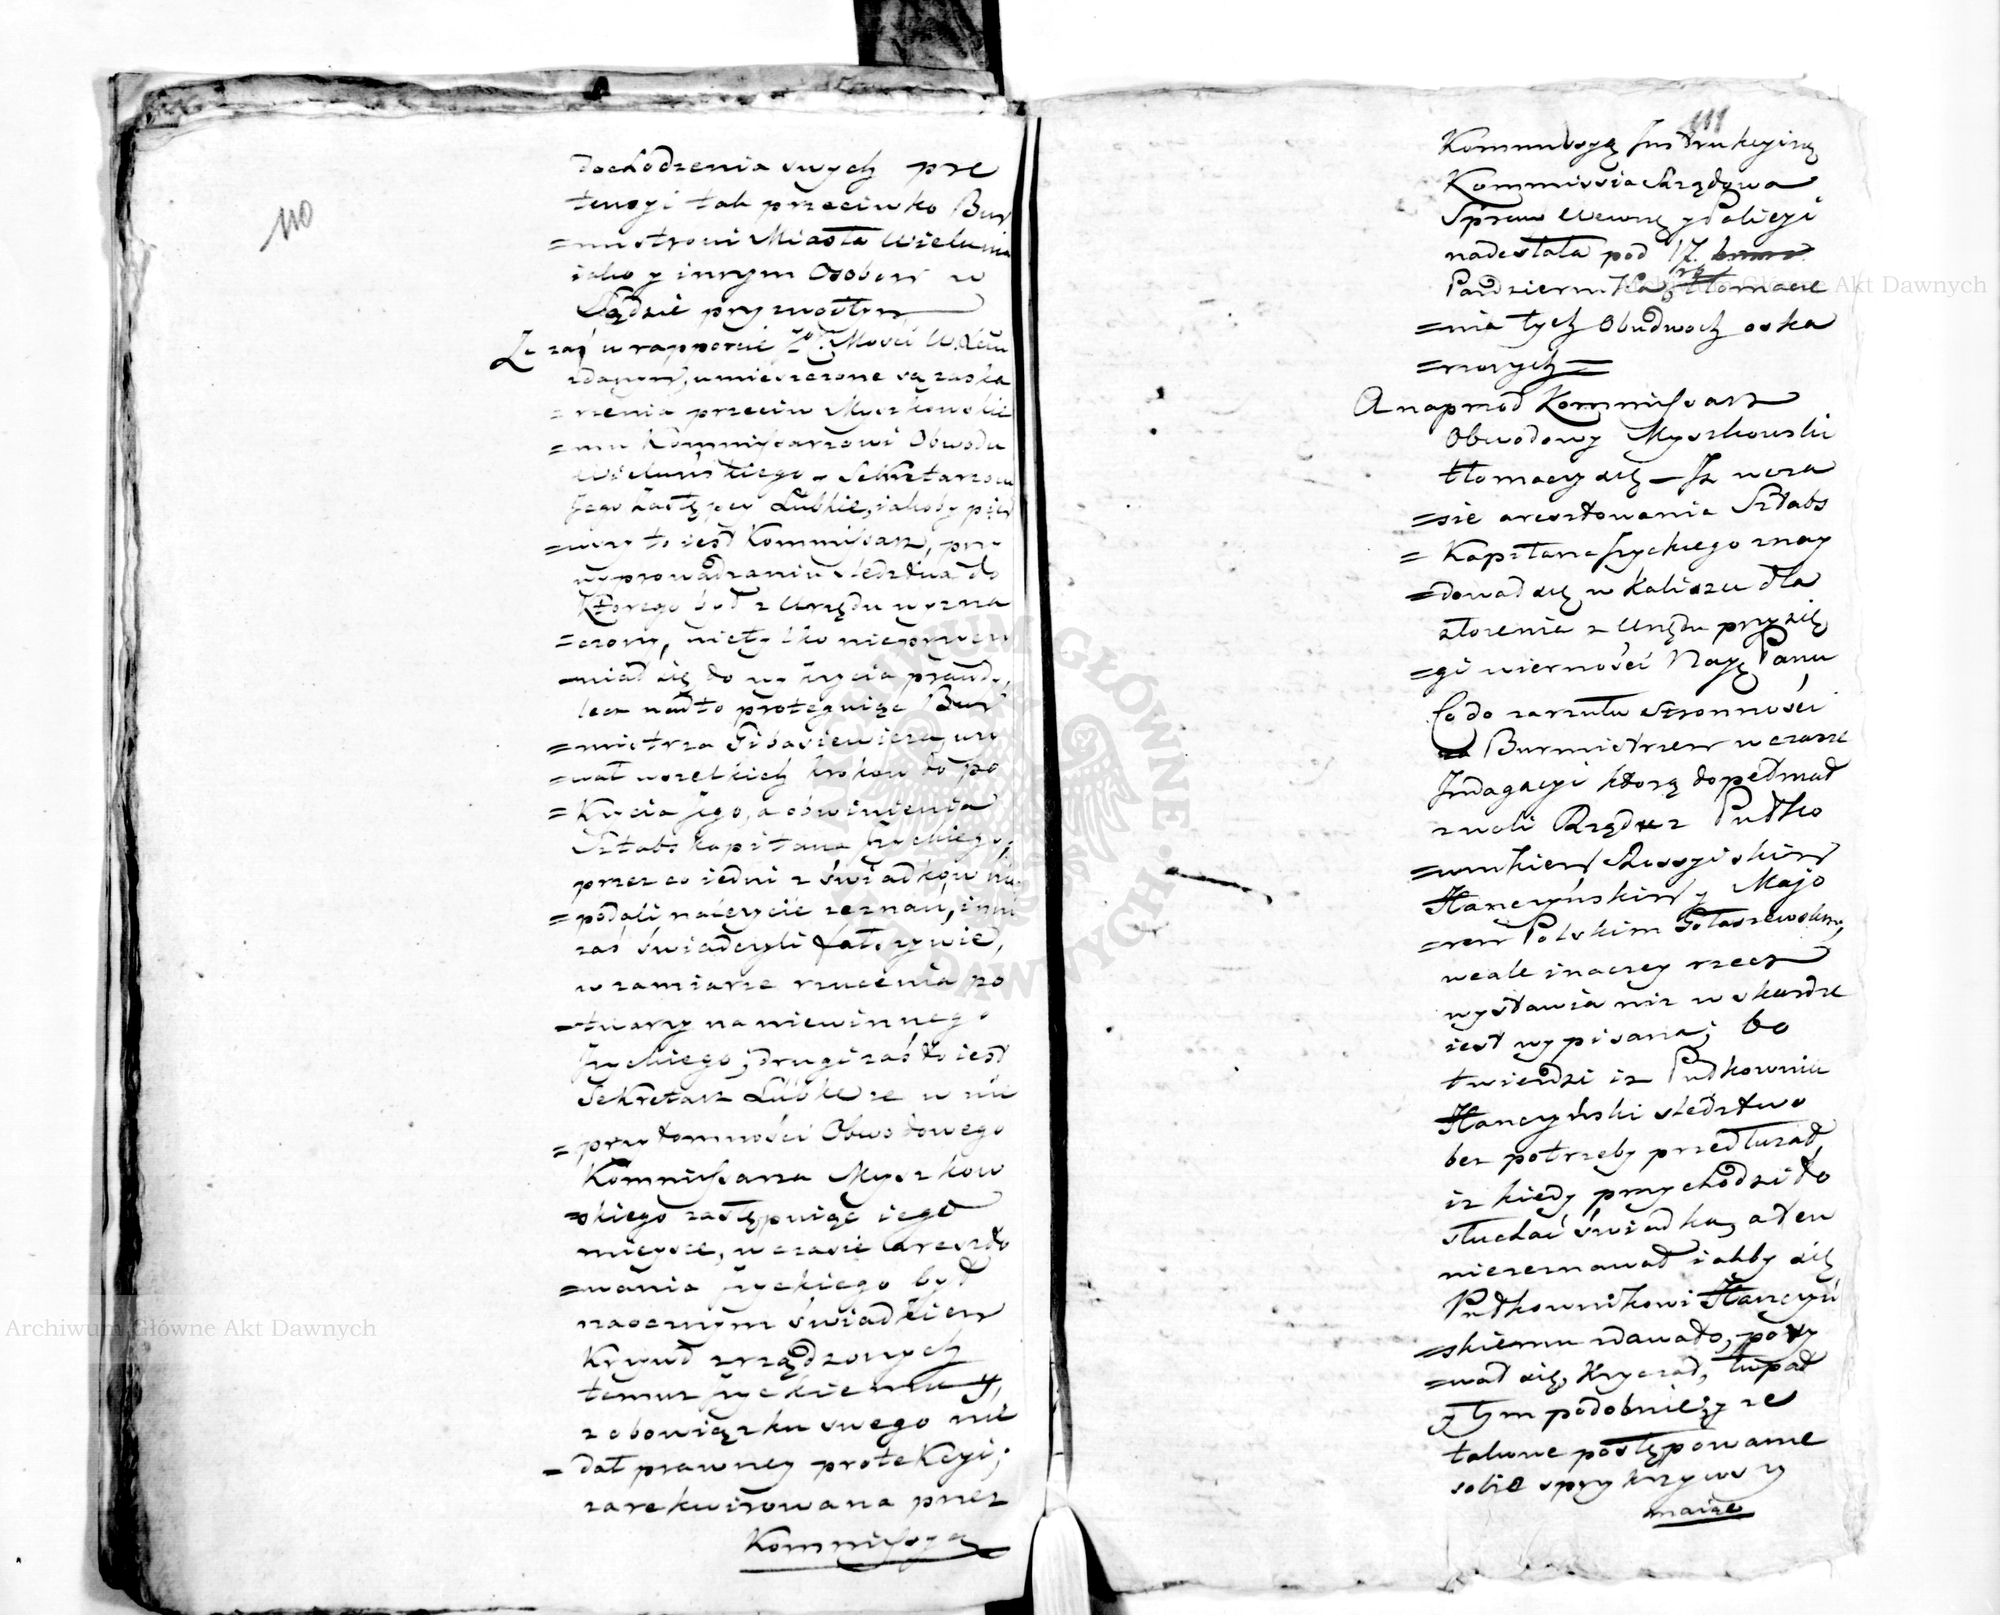 110
dochodzenia swych pre
tensyi tak przeciwko Bur
=mistrowi Miasta Wielunia
iako y innym Osobom w
Sądzie przyzwoitym
Ze zaś w rapporcie Mości W.
zdanym, umieszczone są zaska
=rzenia przeciw Myszkowskie
=mu Kommissarzowi Obwodu
Wieluńskiego – Sekretarzowi
Jego Zastępcy Lübkie, iakoby pier
=wszy to iest Kommissarz, przy
wyprowadzaniu śledztwa do
Którego był z Urzędu wyzna
=czony, nietylko nieprzyczy
=niał się do wykrycia prawdy,
lecz nadto proteguiąc Bur
=mistrza Gibasiewicza, uży
=wał wszelkich kroków do po
=krycia Jego, a obwinienia
Sztabs kapitana Życkiego,
przez co iedni z świadków nie
=podali należycie zeznań, inni
zaś świadczyli fałszywie,
w zamiarze rzucenia po
=twarzy na niewinnego
Życkiego; drugi zaś to iest
Sekretarz Lübke że w nie
=przytomności Obwodowego
Kommissarza Myszkow
=skiego zastępuiąc iego
mieysce, w czasie areszto
=wania Życkiego był
naocznym świadkiem
Krzywd zrządzonych
temuż Życkiemu y,
z obowiązku swego nie
=dał prawney protekcyi;
zarekwirowana przez
Kommissyą
111
Kommissyą Instrukcyiną
Kommissia Rządowa
Spraw Wewnę y Policyi
nadesłała pod 17.
Października tłomacze
=nia tych Obudwoch oska
=rzonych =
A naprzod Kommissarz
Obwodowy Myszkowski
tłomaczy się – Iż w cza
=sie aresztowania Sztabs
=Kapitana Życkiego znay
=dował się w Kaliszu dla
złożenia z Urzędu przysię
=gi wierności Nayę Panu
Co do zarzutu stronności
za Burmistrzem w czasie
Indagacyi którą dopełniał
z woli Rządu z Pułko
=wnikiem Rossyiskim
Hanczyńskim y Majo
=rem Polskim Gołaszewskim,
wcale inaczey rzecz
wystawia niż w skardze
iest wypisana; bo
twierdzi iż Pułkownik
Hanczyński śledztwo
bez potrzeby przedłużał,
iż kiedy przychodzi do
słuchać świadka, a ten
niezeznawał iakby się
Pułkownikowi Hanczyń
=skiemu zdawało, pory
=wał się, Krzyczał, tupał
y tym podobnie, y że
takowe postępowanie
sobie sprzykrzywszy
maiąc
Archiwum Główne Akt Dawnych
Archiwum Główne Akt Dawnych
ARCHIWUM GŁÓWNE AKT DAWNYCH